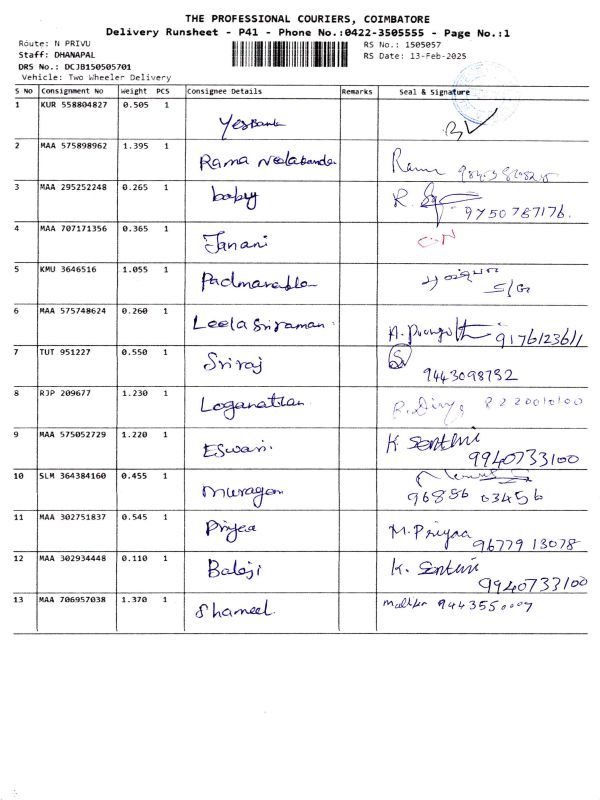 THE PROFESSIONAL COURIERS, COIMBATORE
Delivery Runsheet - P41 - Phone No.:0422-3505555 - Page No.:1
Route: N PRIVU RS No.: 1505057
Staff: DHANAPAL RS Date: 13-Feb-2025
DRS No.: DCJB150505701
Vehicle: Two Wheeler Delivery
S No Consignment No Weight PCS Consignee Details Remarks Seal & Signature
1 KUR 558804827 0.505 1 YesBank
2 MAA 575898962 1.395 1 Rama Rama
3 MAA 295252248 0.265 1 baby R. 9750787176.
4 MAA 707171356 0.365 1 Janani C.N
5 KMU 3646516 1.055 1 S/G
6 MAA 575748624 0.260 1 Leela Sriraman. A. 9176123611
7 TUT 951227 0.550 1 Sriraj S 9443098732
8 RJP 209677 1.230 1 Loganathan.
9 MAA 575052729 1.220 1 Eswari. K Senthil 9940733100
10 SLM 364384160 0.455 1 Murugan 96886 03456
11 MAA 302751837 0.545 1 Priyaa M. Priyaa 96779 13078
12 MAA 302934448 0.110 1 Balaji K. Senthil 9940733100
13 MAA 706957038 1.370 1 Shameel.